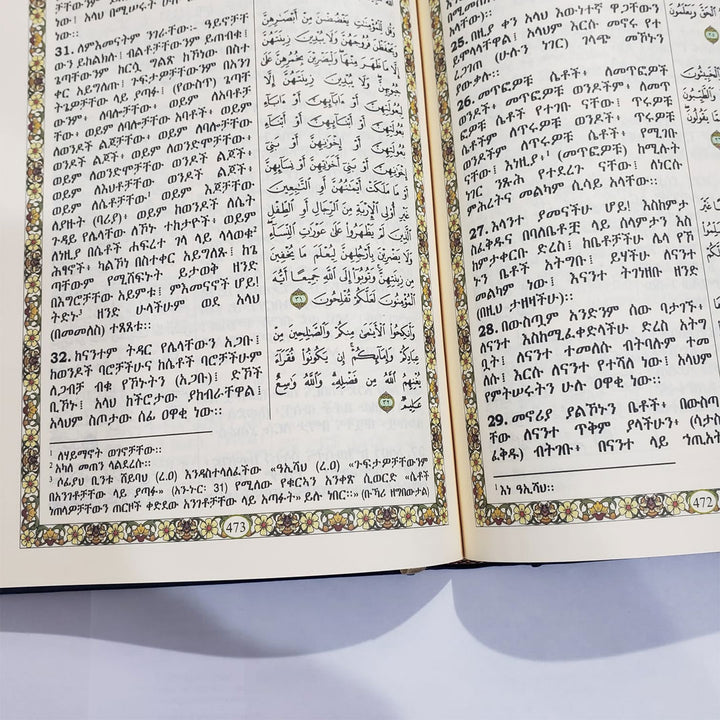 ነው። አላህ በሚሠሩት
31. ለምእመናትም ንገራቸው፦ ዓይኖቻቸ
ውን ይከልክሉ፤ ብልቶቻቸውንም ይጠብቁ፤
ጌጣቸውንም ከርሷ ግልጽ ከኾነው በስተ
ቀር አይግለጡ፤ ጉፍታዎቻቸውንም በአንገ
ትጌዎቻቸው ላይ ያጣፉ፤ (የውስጥ) ጌጣቸ
ውንም፣ ለባሎቻቸው፣ ወይም ለአባቶቻ
ቸው፣ ወይም ለባሎቻቸው አባቶች፣ ወይም
ለወንዶች ልጆቻቸው፣ ወይም ለባሎቻቸው
ወንዶች ልጆች፣ ወይም ለወንድሞቻቸው፣
ወይም ለወንድሞቻቸው ወንዶች ልጆች፣
ወይም ለእህቶቻቸው ወንዶች ልጆች፣
ወይም ለሴቶቻቸው¹ ወይም እጆቻቸው
ለያዙት (ባሪያ)፣ ወይም ከወንዶች ለሴት
ጉዳይ የሌላቸው ለኾኑ ተከታዮች፣ ወይም
ለነዚያ በሴቶች ሐፍረተ ገላ ላይ ላላወቁ²
ሕፃኖች፣ ካልኾነ በስተቀር አይግለጡ፤ ከጌ
ጣቸውም የሚሸፍኑት ይታወቅ ዘንድ
በእግሮቻቸው አይምቱ፤ ምእመናኖች ሆይ!
ትድኑ³ ዘንድ ሁላችሁም ወደ አላህ
(በመመለስ) ተጸጸቱ።
32. ከናንተም ትዳር የሌላቸውን አጋቡ፤
ከወንዶች ባሮቻችሁና ከሴቶች ባሮቻችሁም
ለጋብቻ ብቁ የኾኑትን (አጋቡ)፤ ድኾች
ቢኾኑ፤ አላህ ከችሮታው ያከብራቸዋል፤
አላህም ስጦታው ሰፊ ዐዋቂ ነው።
¹ ለሃይማኖት ወገኖቻቸው።
² አካለ መጠን ላልደረሱ።
³ ሶፊያህ ቢንቱ ሸይባህ (ረ.ዐ) እንዳስተላለፈችው «ዓኢሻህ (ረ.ዐ) «ጉፍታዎቻቸውንም
በአንገቶቻቸው ላይ ያጣፉ» (አን-ኑር: 31) የሚለው የቁርኣን አንቀጽ ሲወርድ «ሴቶች
ነጠላዎቻቸውን ጠርዞች ቀድደው አንገቶቻቸው ላይ አጣፉት» ይሉ ነበር።» (ቡኻሪ ዘግበውታል)
وَقُل لِّلْمُؤْمِنَٰتِ يَغْضُضْنَ مِنْ أَبْصَٰرِهِنَّ
وَيَحْفَظْنَ فُرُوجَهُنَّ وَلَا يُبْدِينَ زِينَتَهُنَّ
إِلَّا مَا ظَهَرَ مِنْهَا وَلْيَضْرِبْنَ بِخُمُرِهِنَّ عَلَىٰ
جُيُوبِهِنَّ وَلَا يُبْدِينَ زِينَتَهُنَّ إِلَّا
لِبُعُولَتِهِنَّ أَوْ ءَابَآئِهِنَّ أَوْ ءَابَآءِ
بُعُولَتِهِنَّ أَوْ أَبْنَآئِهِنَّ أَوْ أَبْنَآءِ
بُعُولَتِهِنَّ أَوْ إِخْوَٰنِهِنَّ أَوْ بَنِىٓ
إِخْوَٰنِهِنَّ أَوْ بَنِىٓ أَخَوَٰتِهِنَّ أَوْ نِسَآئِهِنَّ
أَوْ مَا مَلَكَتْ أَيْمَٰنُهُنَّ أَوِ ٱلتَّٰبِعِينَ
غَيْرِ أُو۟لِى ٱلْإِرْبَةِ مِنَ ٱلرِّجَالِ أَوِ ٱلطِّفْلِ
ٱلَّذِينَ لَمْ يَظْهَرُوا۟ عَلَىٰ عَوْرَٰتِ ٱلنِّسَآءِ
وَلَا يَضْرِبْنَ بِأَرْجُلِهِنَّ لِيُعْلَمَ مَا يُخْفِينَ
مِن زِينَتِهِنَّ وَتُوبُوٓا۟ إِلَى ٱللَّهِ جَمِيعًا أَيُّهَ
ٱلْمُؤْمِنُونَ لَعَلَّكُمْ تُفْلِحُونَ ٣١
وَأَنكِحُوا۟ ٱلْأَيَٰمَىٰ مِنكُمْ وَٱلصَّٰلِحِينَ مِنْ
عِبَادِكُمْ وَإِمَآئِكُمْ إِن يَكُونُوا۟ فُقَرَآءَ
يُغْنِهِمُ ٱللَّهُ مِن فَضْلِهِۦ وَٱللَّهُ وَٰسِعٌ
عَلِيمٌ ٣٢
473
25. በዚያ ቀን አላህ እውነተኛ ዋጋቸውን
ይሞላላቸዋል፤ አላህም እርሱ መኖሩ የተ
ረጋገጠ (ሁሉን ነገር) ገላጭ መኾኑን
ያውቃሉ።
26. መጥፎዎች ሴቶች፣ ለመጥፎዎች
ወንዶች፣ መጥፎዎች ወንዶችም፣ ለመጥ
ፎዎቹ ሴቶች የተገቡ ናቸው፤ ጥሩዎቹ
ሴቶችም ለጥሩዎቹ ወንዶች፣ ጥሩዎቹ
ወንዶችም ለጥሩዎቹ ሴቶች፣ የሚገቡ
ናቸው፤ እነዚያ፣¹ (መጥፎዎቹ) ከሚሉት
ነገር ንጹሕ የተደረጉ ናቸው፤ ለነርሱ
ምሕረትና መልካም ሲሳይ አላቸው።
27. እላንተ ያመናችሁ ሆይ! እስከምታ
ስፈቅዱና በባለቤቶቿ ላይ ሰላምታን እስ
ከምታቀርቡ ድረስ፤ ከቤቶቻችሁ ሌላ የኾ
ኑን ቤቶች አትግቡ፤ ይሃችሁ ለናንተ
መልካም ነው፤ እናንተ ትገነዘቡ ዘንድ
(በዚህ ታዘዛችሁ)።
28. በውስጧም አንድንም ሰው ባታገኙ፣
ለናንተ እስከሚፈቀድላችሁ ድረስ አትግ
ቧት፤ ለናንተ ተመለሱ ብትባሉም ተመ
ለሱ፤ እርሱ ለናንተ የተሻለ ነው፤ አላህም
የምትሠሩትን ሁሉ ዐዋቂ ነው።
29. መኖሪያ ያልኾኑን ቤቶች፣ በውስጣ
ቸው ለናንተ ጥቅም ያላችሁን፣ (ሳታስ
ፈቅዱ) ብትገቡ፣ በናንተ ላይ ኀጢአት
¹ እነ ዓኢሻህ።
472